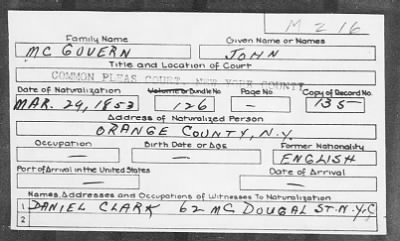 M 216
Family Name Given Name or Names
MC GOVERN JOHN
Title and Location of Court
COMMON PLEAS COURT, NEW YORK COUNTY
Date of Naturalization Volume or Bundle No Page No Copy of Record No.
MAR. 29, 1853 126 — 135
Address of Naturalized Person
ORANGE COUNTY, N.Y.
Occupation Birth Date or Age Former Nationality
— — ENGLISH
Port of Arrival in the United States Date of Arrival
— —
Names, Addresses and Occupations of Witnesses To Naturalization
1 DANIEL CLARK 62 MC DOUGAL ST. N.Y.C
2